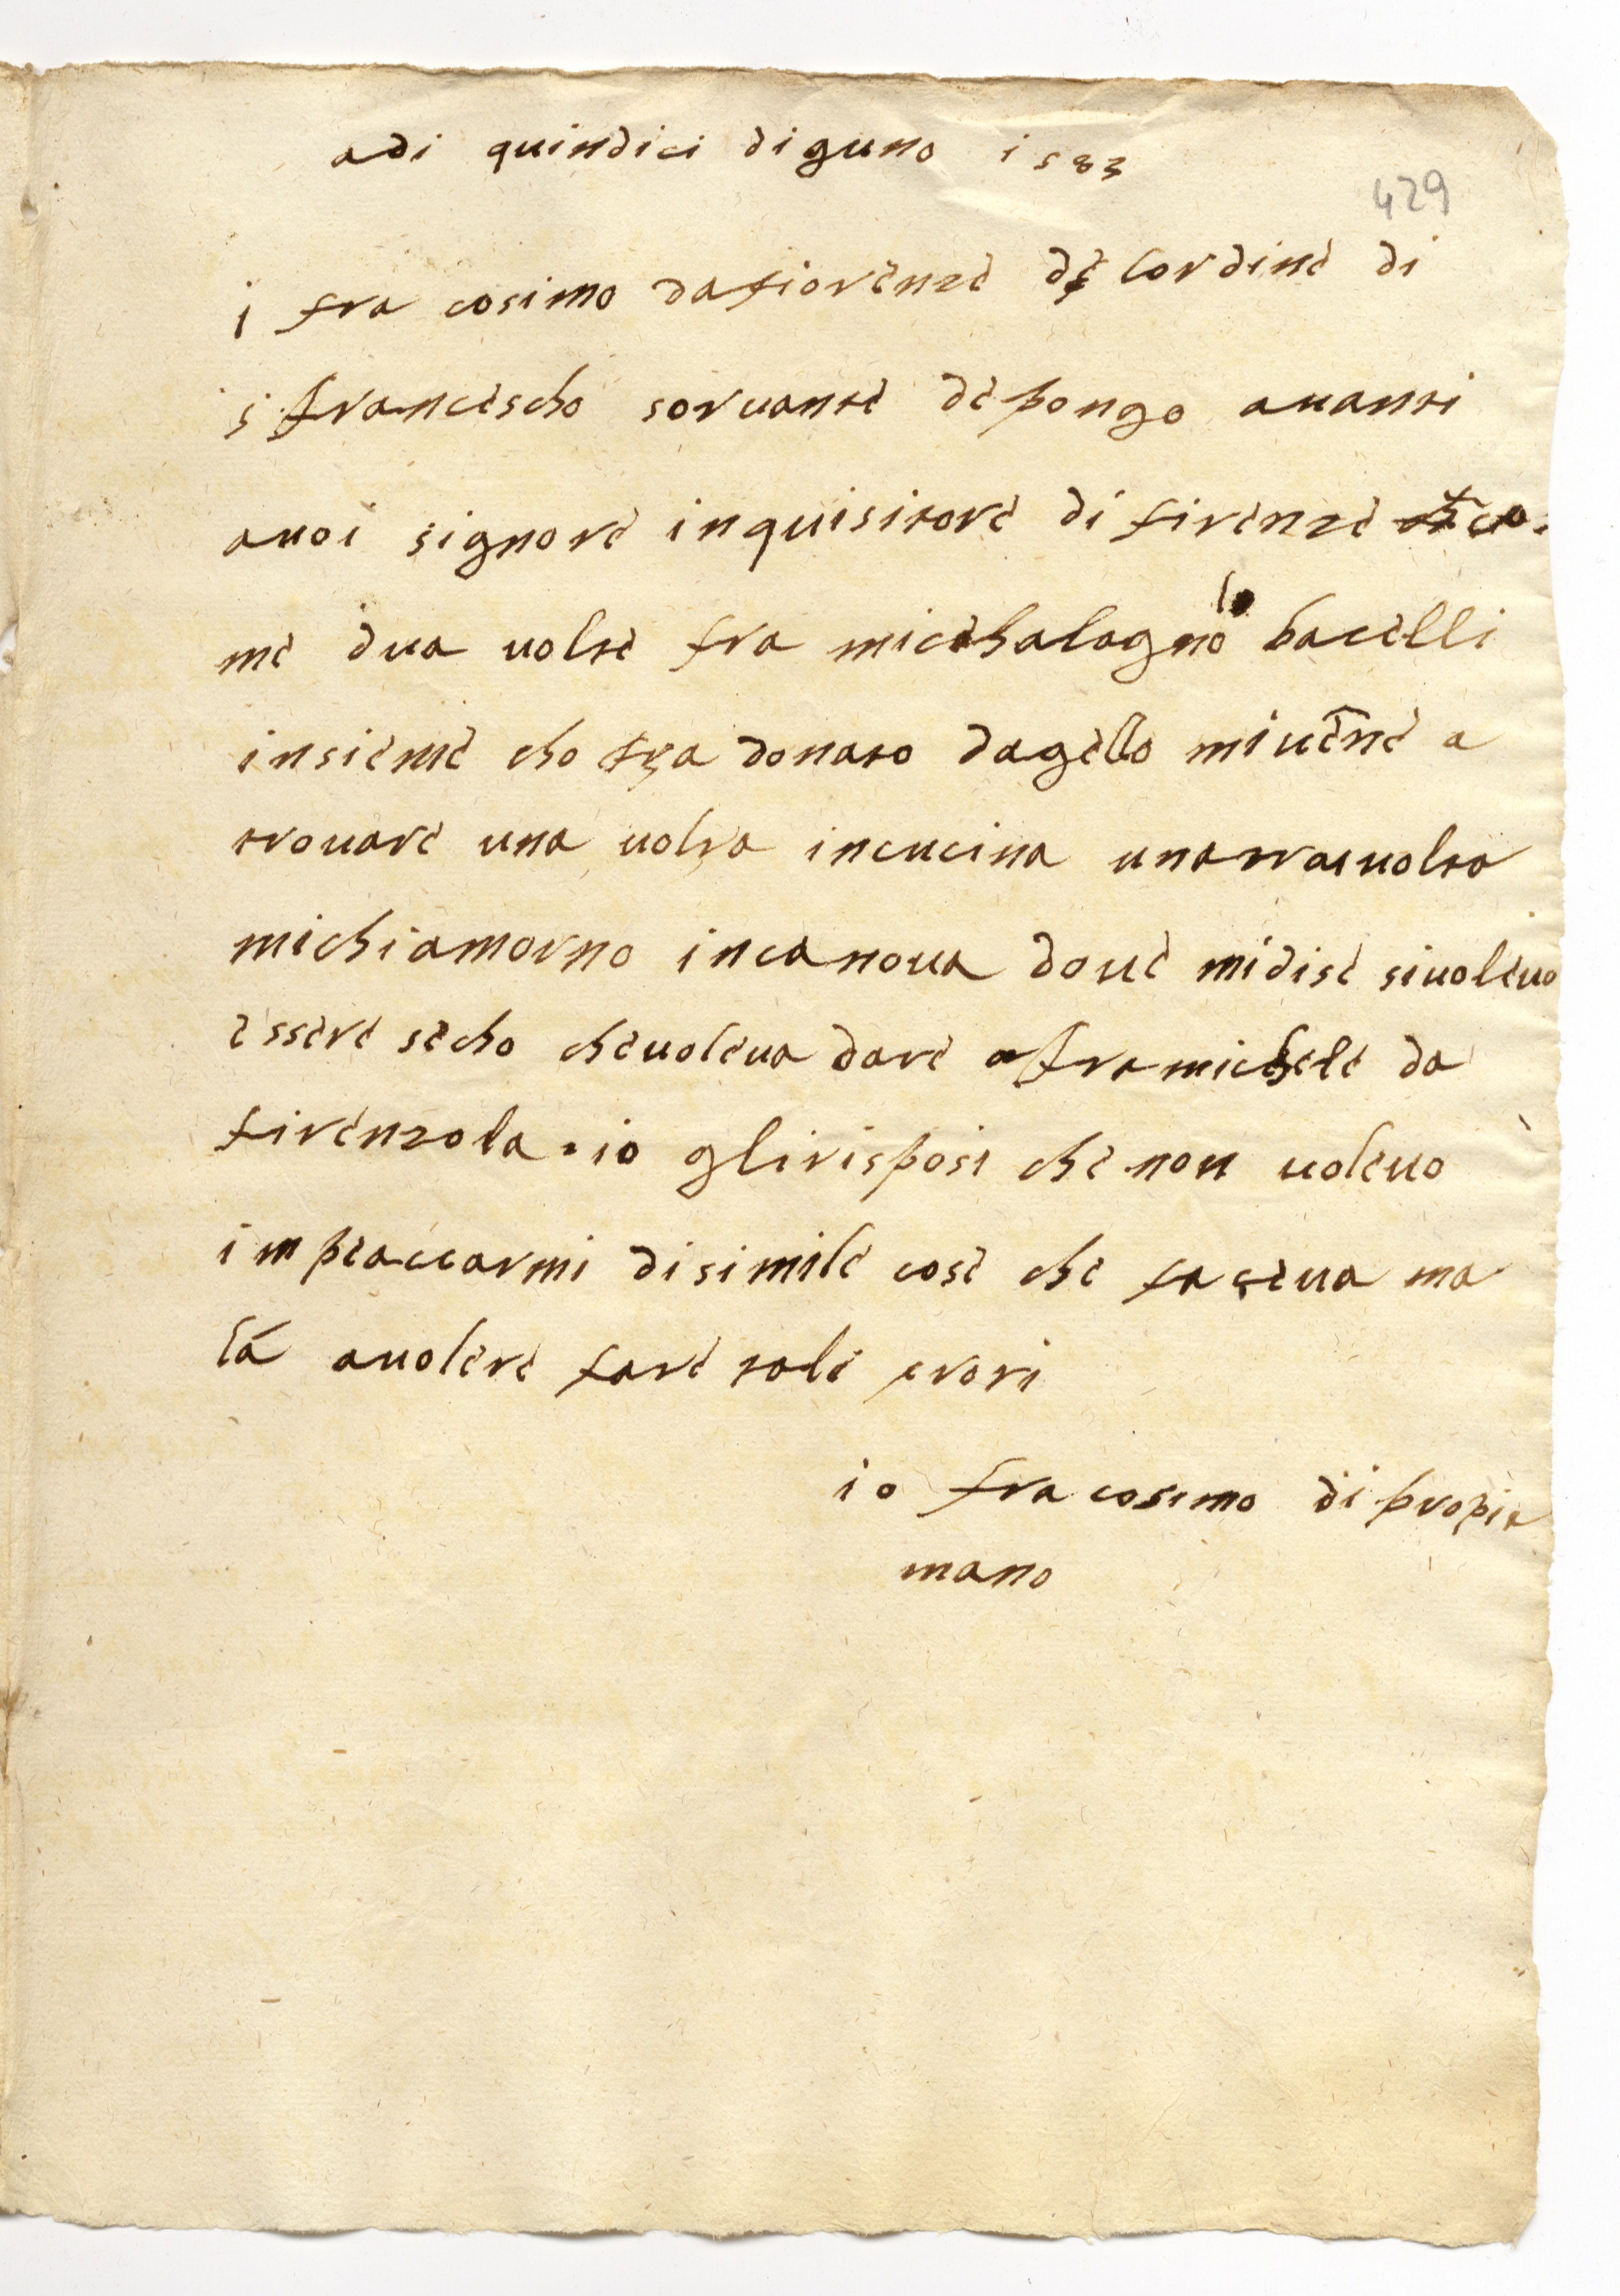 adi quindici diguno 1583
429
i fra cosimo dafiorenze de lordine di
s francescho sorvante depongo avanti
avoi signore inquisitore di firenze co
me dua volte fra michalagnolo bacelli
insieme cho fra donato dagello mivēne a
trovare una volta incucina unatraivolta
michiamorno incanova dove midise sivolevo
essere secho chevoleva dare a framichele da
firenzola. io glirisposi che non volevo
impeaccarmi disimile cose che faceva ma
lá avolere fare tale erori
io fra cosimo di propia
mano